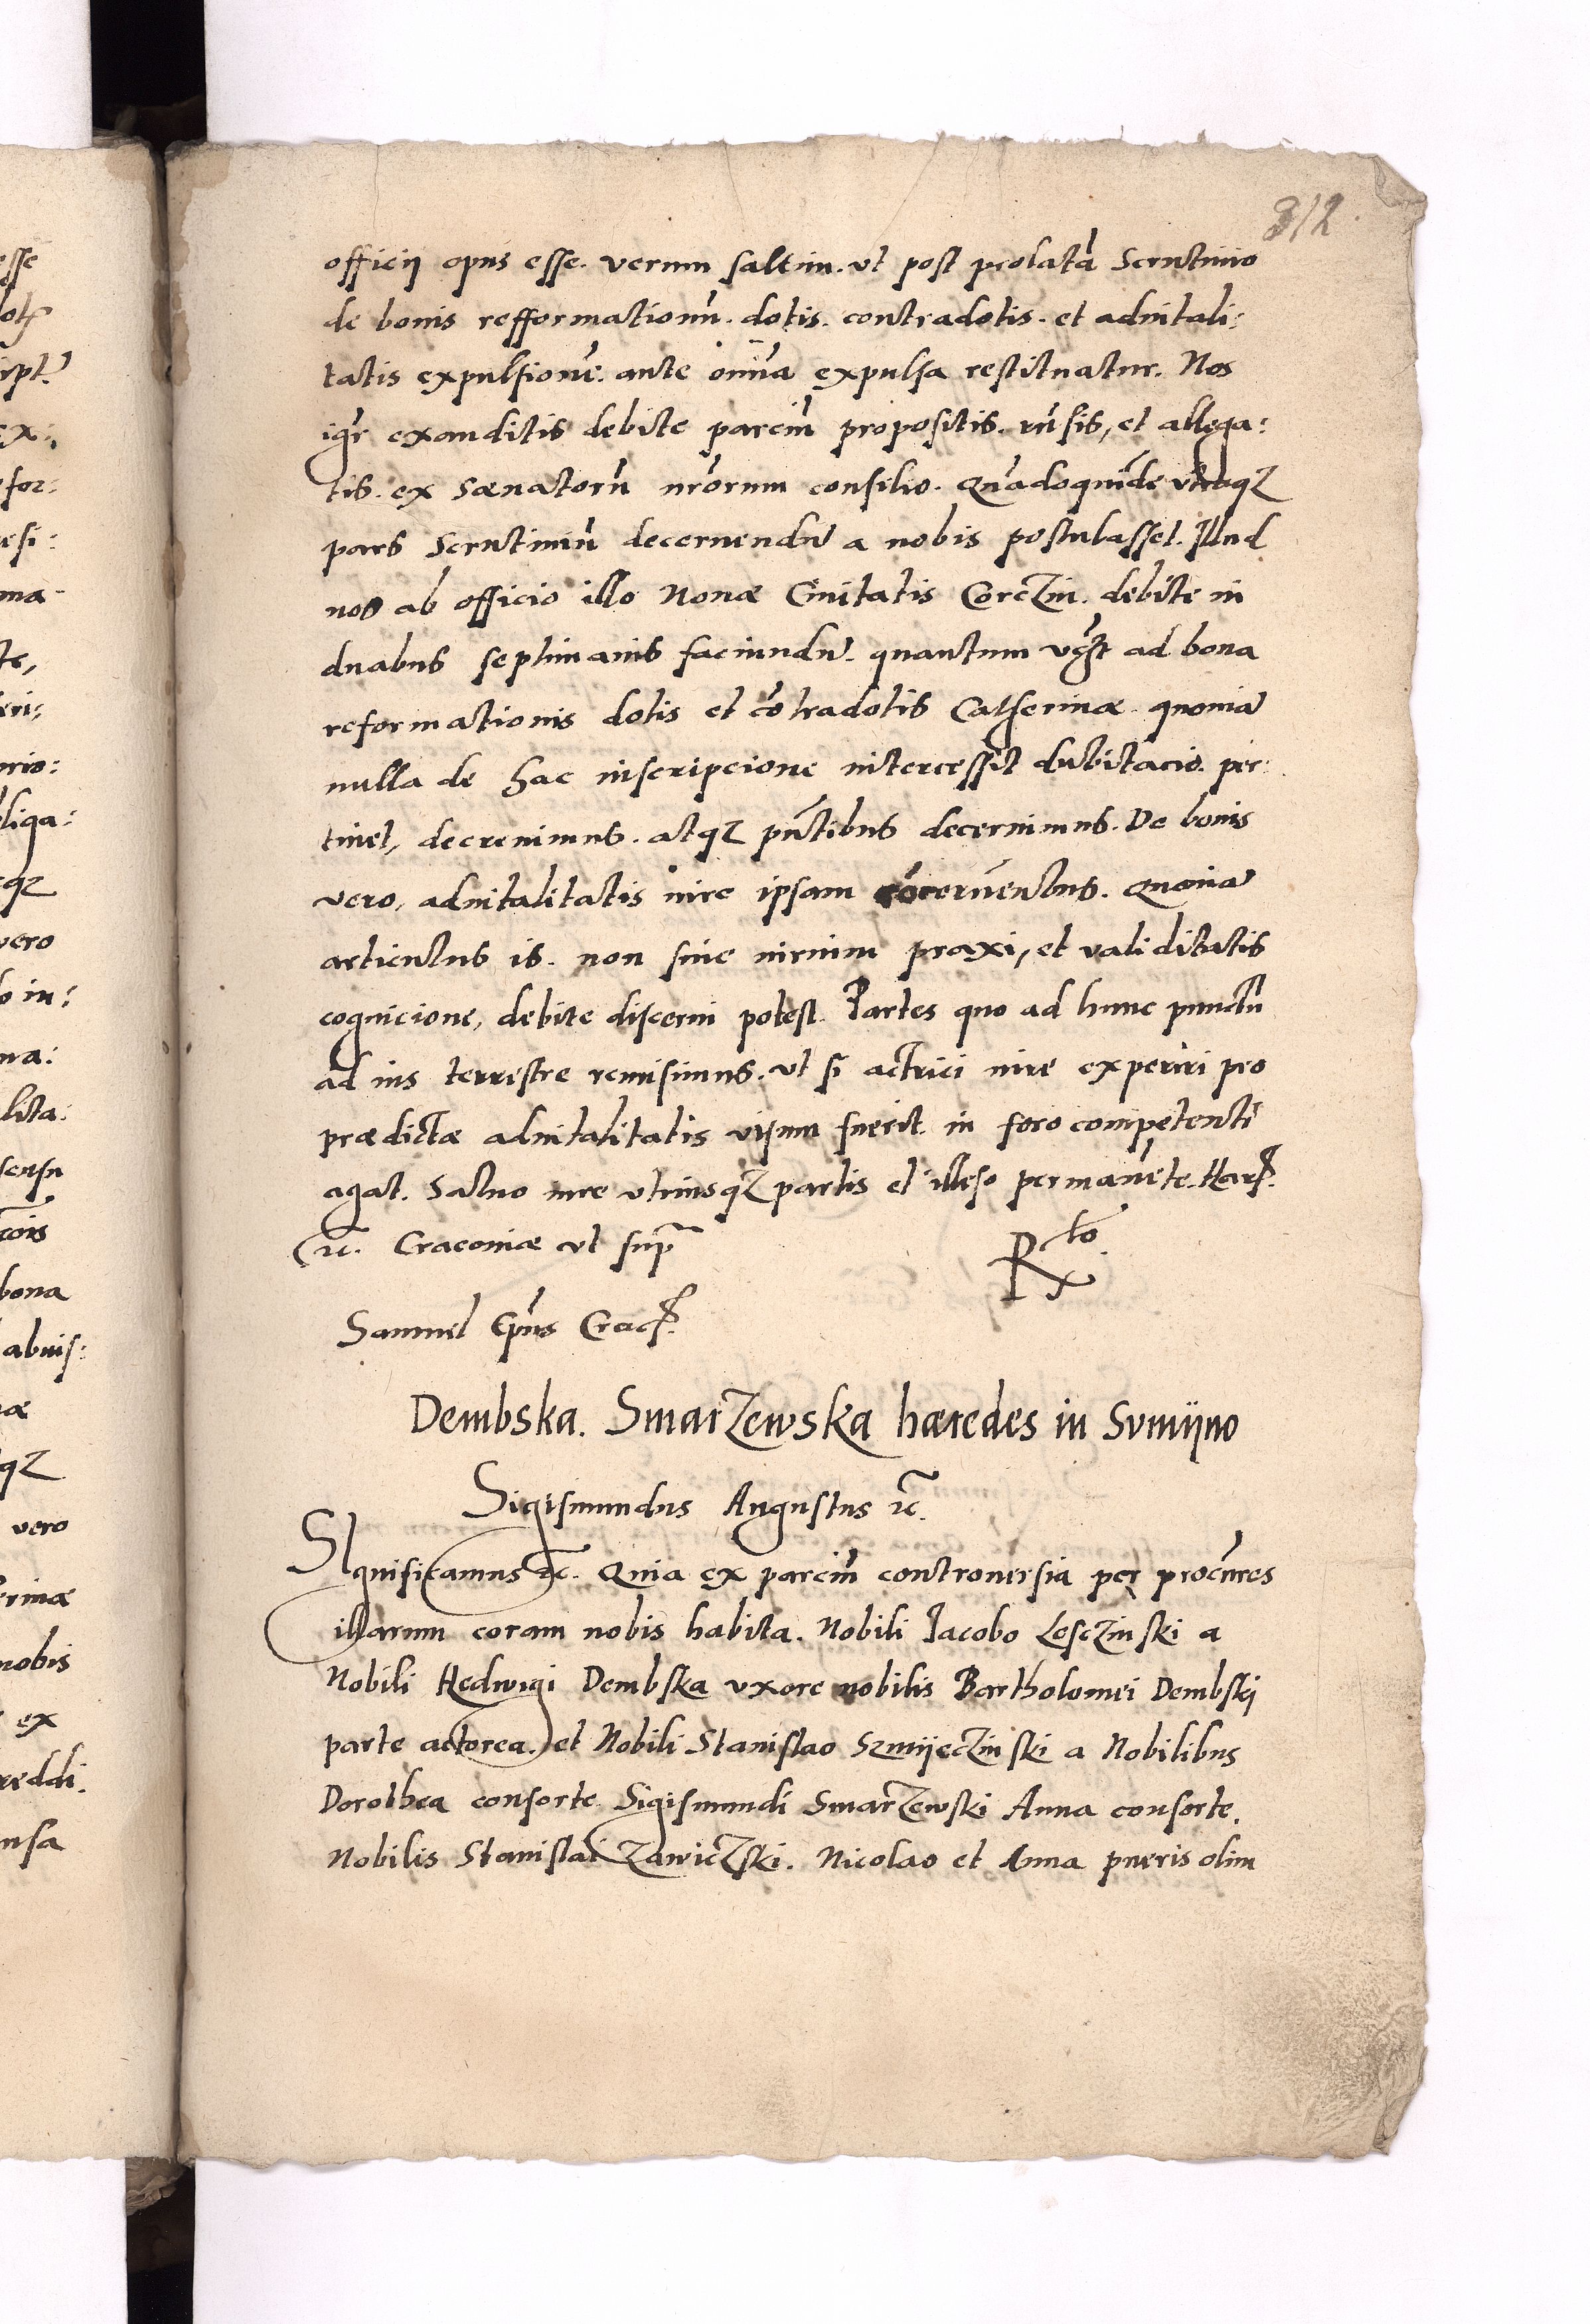 312
officij opus esse. verum saltim. ut post prolatā Scrutinio
de bonis refformationū. dotis. contradotis. et aduitali:
tatis expulsionē. ante omīa expulsa restituatur. Nos
igr̄ exauditis debite parciū propositis. rn̄sis, et allega:
tis. ex Sænatorū nr̄orum consilio. Qūadoquidē vtraqȝ
pars Scrutiniū decernendū a nobis postulasset. Illud
nos ab officio illo Nouæ Ciuitatis Corczin. debite in
duabus septimanis faciundū. quantum vero ad bona
reformationis dotis et cōtradotis Catherinæ. quoniā
nulla de hac inscripcione intercessit dubitacio. per:
tinet, decreuimus. atqȝ pn̄tibus decernimus. De bonis
vero, aduitalitatis iure ipsam cōcernentibus. Quoniā
articulus is. non sine iurium praxi, et validitatis
cognicione, debite discerni potest. Partes quo ad hunc punctū
ad ius terrestre remisimus. ut si actrici iure experiri pro
prædictæ aduitalitatis visum fuerit. in foro competenti
agat. Saluo iure vtriusqȝ partis et illeso permanēte. Harȝ.
ꝛc. Cracouiæ ut supr̄
R cto
Samuel Ep̄us Cracȝ.
Dembska. Smarzewska hæredes in Svmijno
Sigismundus Augustus ꝛc.
Significamus ꝛc. Quia ex parciū controuersia per procūres
illarum coram nobis habita. Nobili Jacobo Lesczinski a
Nobili Hedwigi Dembska vxore nobilis Bartholomei Dembskj
parte actorea. et Nobili Stanislao Szmijeczinski a Nobilibus
Dorothea consorte Sigismundi Smarzewski Anna consorte.
Nobilis Stanislai Zawiczski. Nicolao et Anna pueris olim